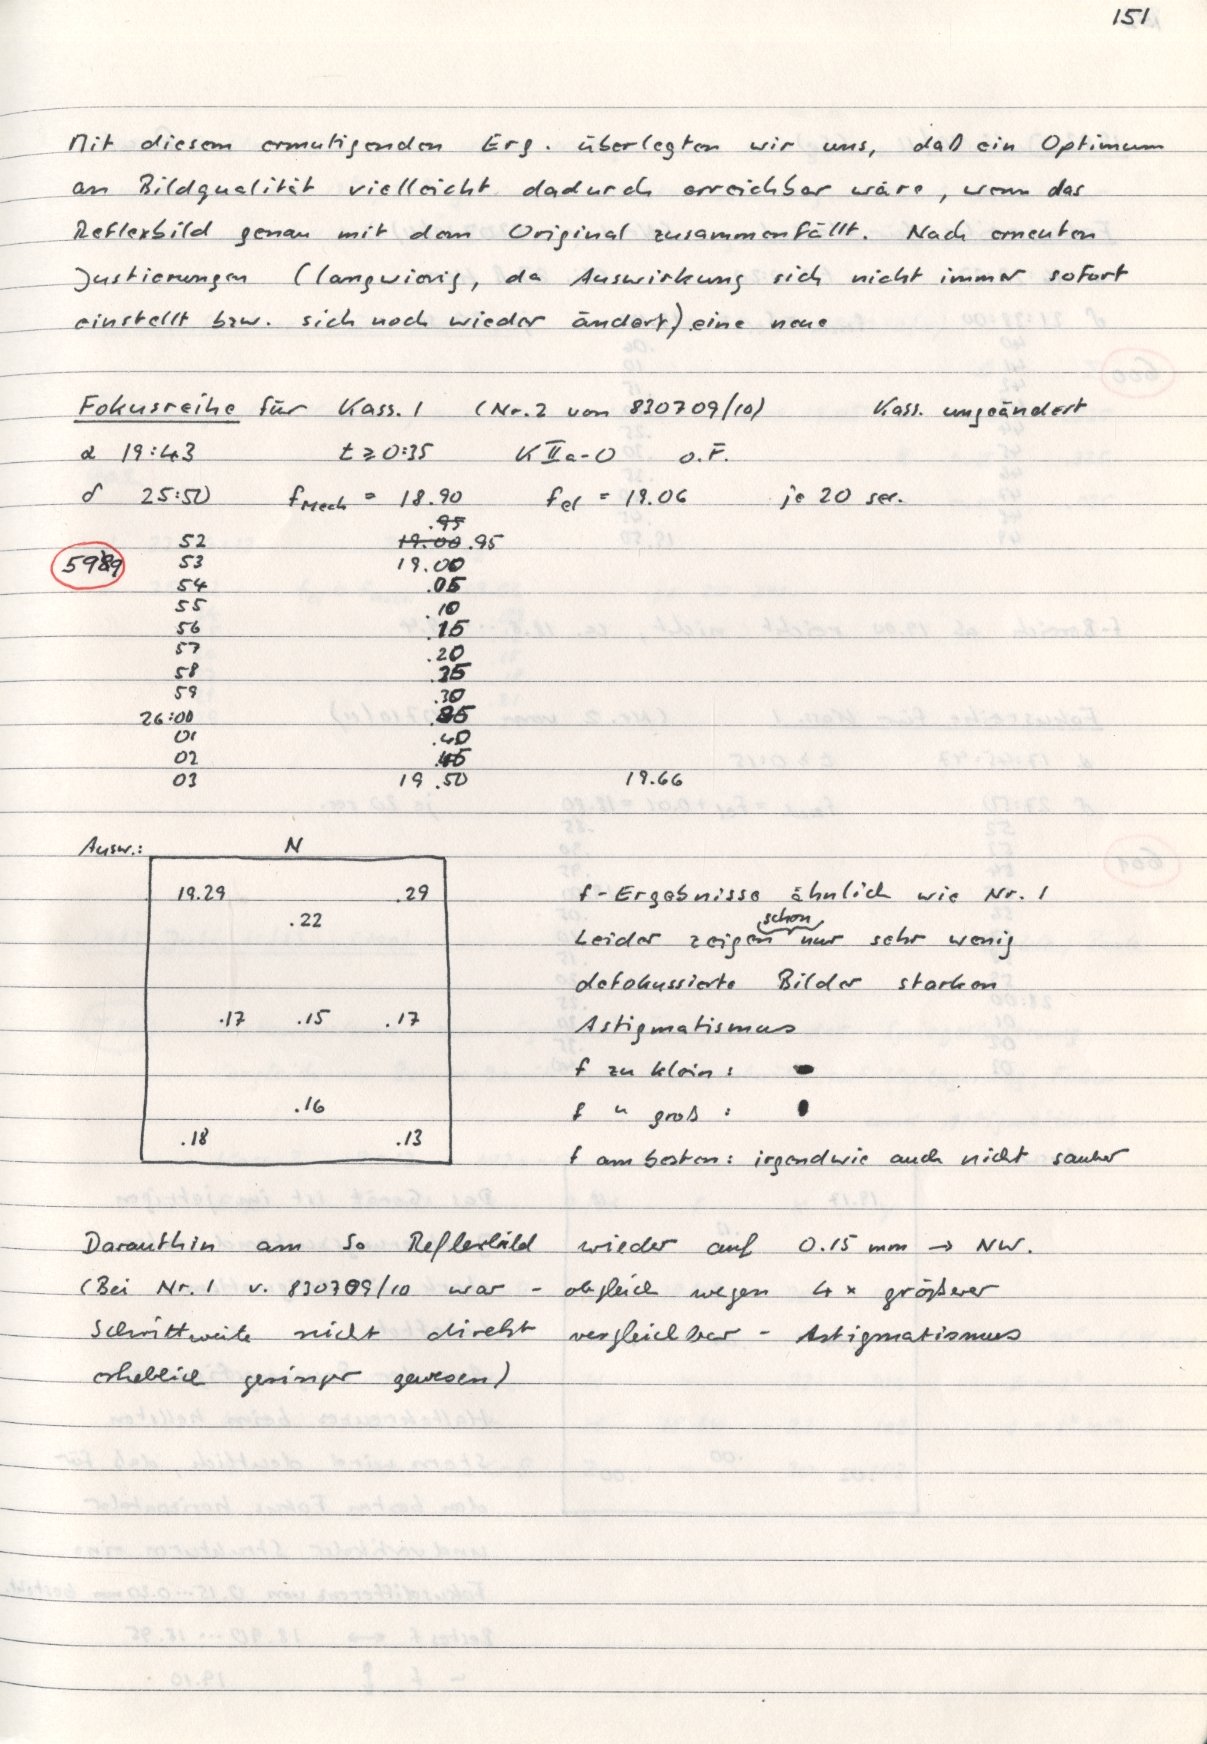 151
Mit diesem ermutigenden Erg. überlegten wir uns, daß ein Optimum
an Bildqualität vielleicht dadurch erreichbar wäre, wenn das
Reflexbild genau mit dem Original zusammenfällt. Nach erneuten
Justierungen (langwierig, da Auswirkung sich nicht immer sofort
einstellt bzw. sich noch wieder ändert) eine neue
Fokusreihe für Kass. 1 (Nr. 2 von 830709/10) Kass. ungeändert
α 19:43 t ≥ 0:35 K IIa-O o.F.
δ 25:50 fMech = 18.90 fel = 19.06 je 20 sec.
.95
52 19.00 .95
5989 53 19.00
54 .05
55 .10
56 .15
57 .20
58 .25
59 .30
26:00 .35
01 .40
02 .45
03 19.50 19.66
Ausw.: N
19.29 .29 f-Ergebnisse ähnlich wie Nr. 1
.22 schon
Leider zeigen nur sehr wenig
defokussierte Bilder starken
.17 .15 .17 Astigmatismus
f zu klein:
.16 f " groß :
.18 .13
f am besten: irgendwie auch nicht sauber
Daraufhin am So Reflexbild wieder auf 0.15 mm → NW.
(Bei Nr. 1 v. 830709/10 war - obgleich wegen 4 x größerer
Schrittweite nicht direkt vergleichbar - Astigmatismus
erheblich geringer gewesen)